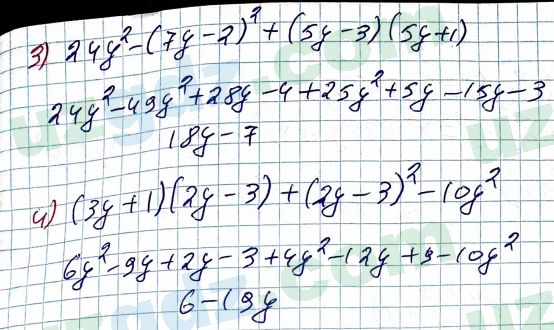 3) 24y² - (7y - 2)² + (5y - 3)(5y + 1)
24y² - 49y² + 28y - 4 + 25y² + 5y - 15y - 3
18y - 7
4) (3y + 1)(2y - 3) + (2y - 3)² - 10y²
6y² - 9y + 2y - 3 + 4y² - 12y + 9 - 10y²
6 - 19y